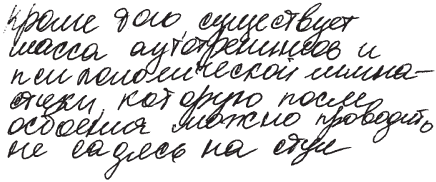 Кроме того, существует
масса аутотренингов и
психологической гимна-
стики, которую после
освоения можно проводить
не садясь на стул